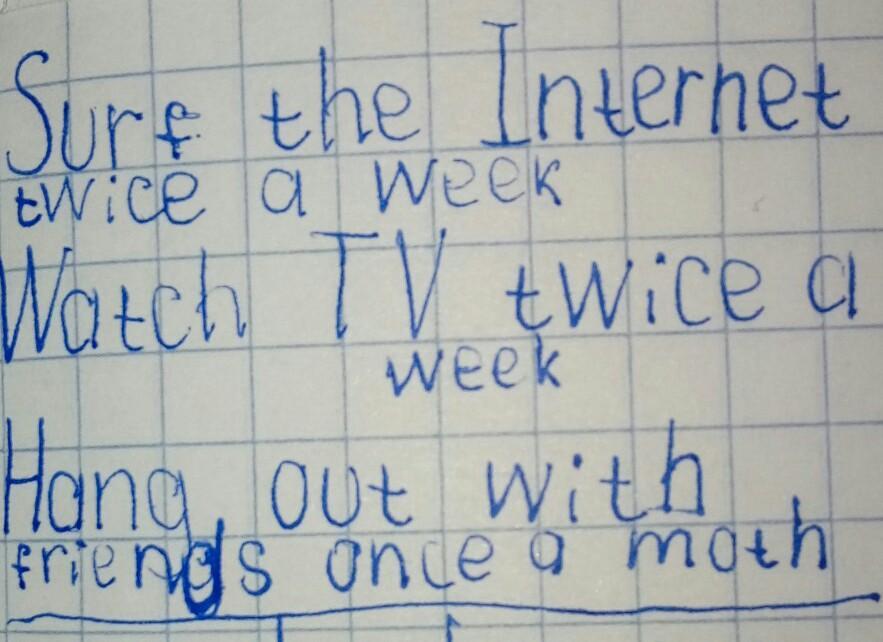 Surf the Internet
twice a week
Watch TV twice a
week
Hang out with
friends once a moth